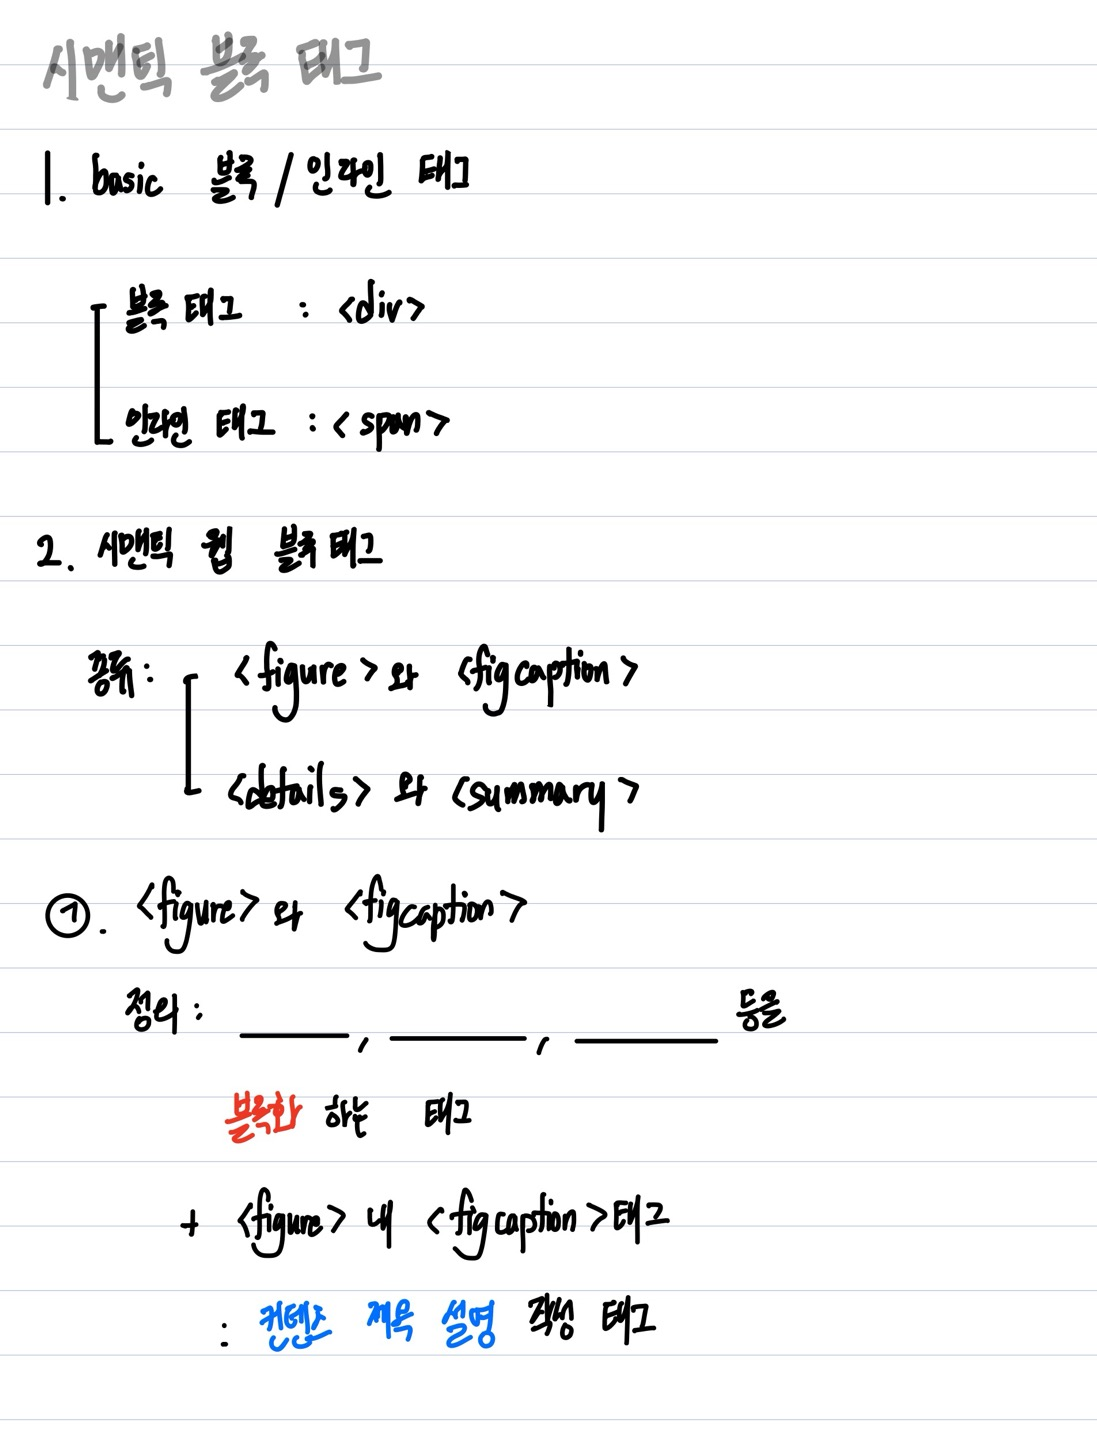 시맨틱 블록 태그
1. basic 블록 / 인라인 태그
블록 태그 : <div>
인라인 태그 : < span>
2. 시맨틱 웹 블록 태그
종류 : <figure >와 <figcaption >
<details> 와 <summary >
①. <figure> 와 <figcaption>
정의 : ____, ____, ____ 등을
블록화 하는 태그
+ <figure> 내 <figcaption >태그
: 컨텐츠 제목 설명 작성 태그